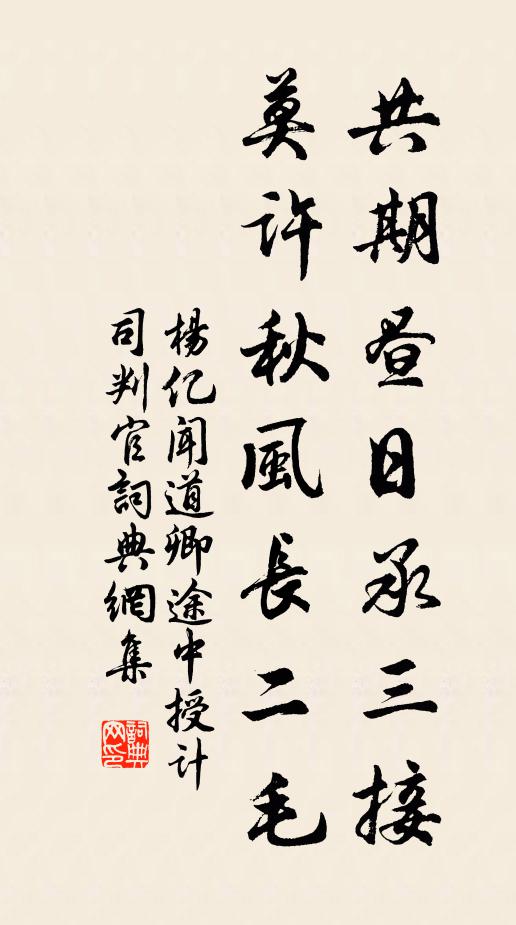 共期昼日承三接
莫許秋風長二毛
楊亿闻道卿途中授计
司判官詞典網集
詞典
网印